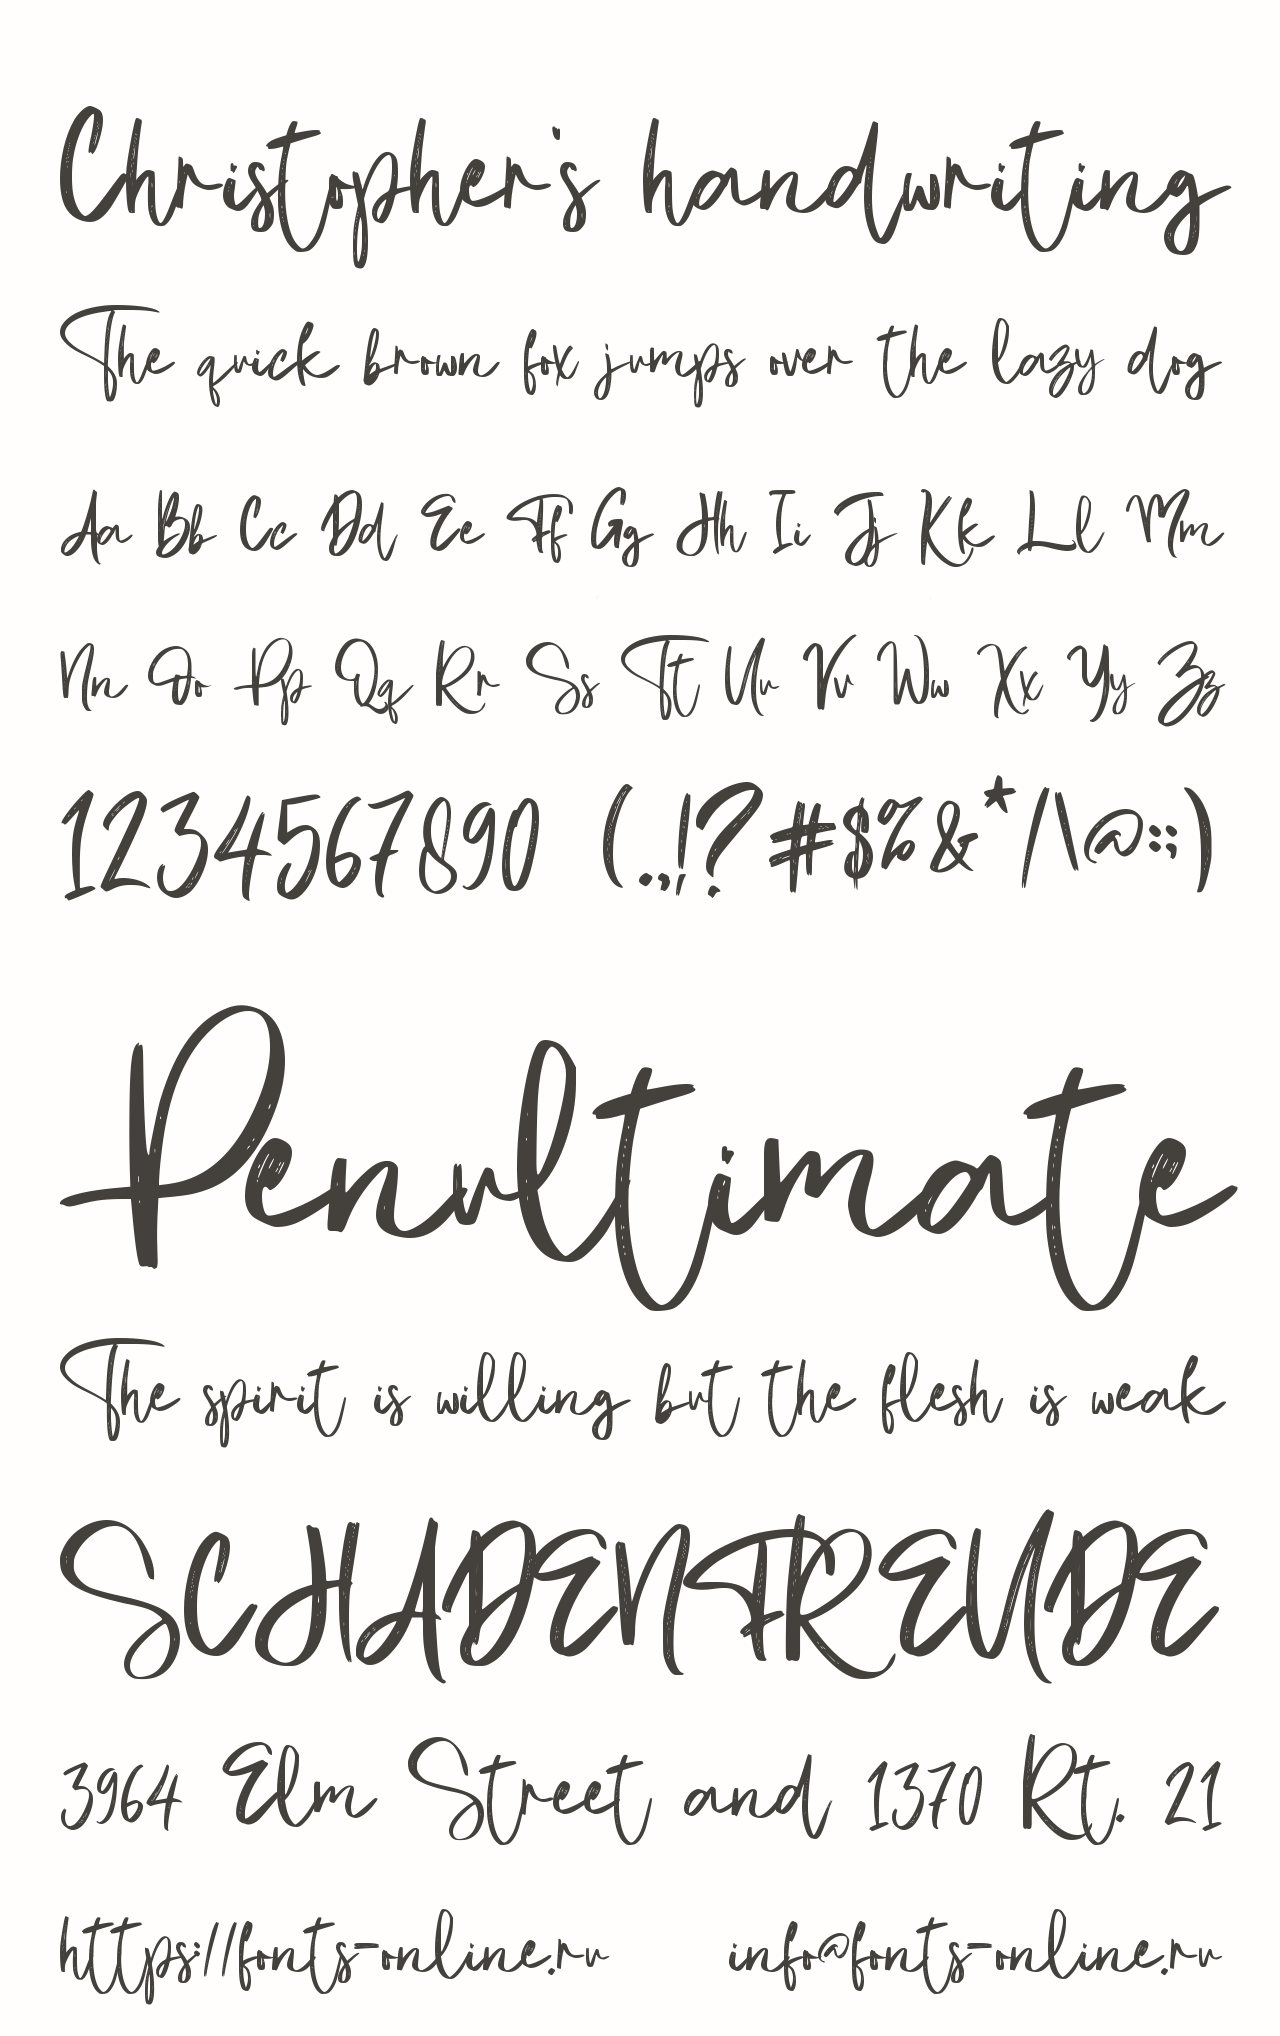 Christopher's handwriting
The quick brown fox jumps over the lazy dog
Aa Bb Cc Dd Ee Ff Gg Hh Ii Jj Kk Ll Mm
Nn Oo Pp Qq Rr Ss Tt Uu Vv Ww Xx Yy Zz
1234567890 (.,!?#$%&*/\@:;)
Penultimate
The spirit is willing but the flesh is weak
SCHADENFREUDE
3964 Elm Street and 1370 Rt. 21
https://fonts-online.ru info@fonts-online.ru